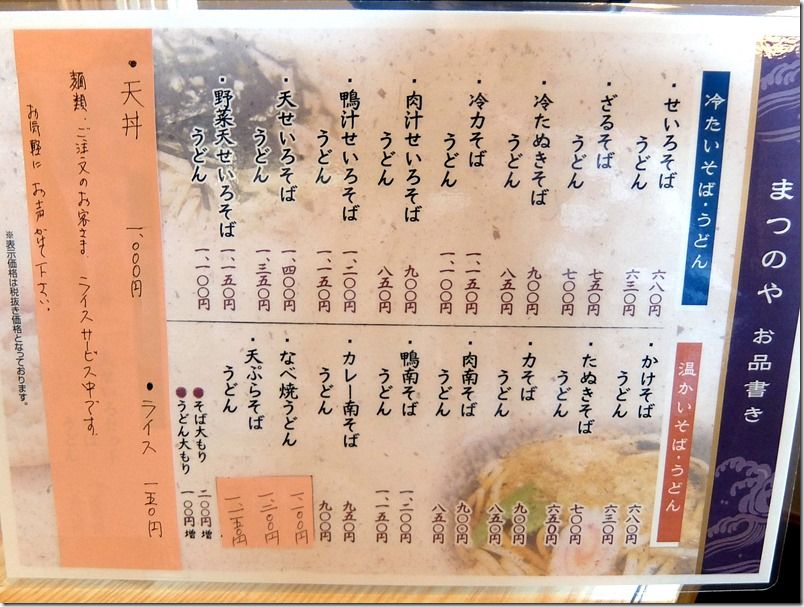 まつのや お品書き
冷たいそば・うどん
・せいろそば 六八〇円
うどん 六三〇円
・ざるそば 七五〇円
うどん 七〇〇円
・冷たぬきそば 九〇〇円
うどん 八五〇円
・冷力そば 一、一五〇円
うどん 一、一〇〇円
・肉汁せいろそば 九〇〇円
うどん 八五〇円
・鴨汁せいろそば 一、二〇〇円
うどん 一、一五〇円
・天せいろそば 一、四〇〇円
うどん 一、三五〇円
・野菜天せいろそば 一、一五〇円
うどん 一、一〇〇円
温かいそば・うどん
・かけそば 六八〇円
うどん 六三〇円
・たぬきそば 七〇〇円
うどん 六五〇円
・力そば 九〇〇円
うどん 八五〇円
・肉南そば 九〇〇円
うどん 八五〇円
・鴨南そば 一、二〇〇円
うどん 一、一五〇円
・カレー南そば 九五〇円
うどん 九〇〇円
・なべ焼うどん 一、一〇〇円
・天ぷらそば 一、二〇〇円
うどん 一、一五〇円
●そば大もり 二〇〇円増
●うどん大もり 一〇〇円増
・天丼 一、〇〇〇円
・ライス 一五〇円
麺類、ご注文のお客さま ライスサービス中です。
お気軽に お声かけて下さい。
※表示価格は税抜き価格となっております。